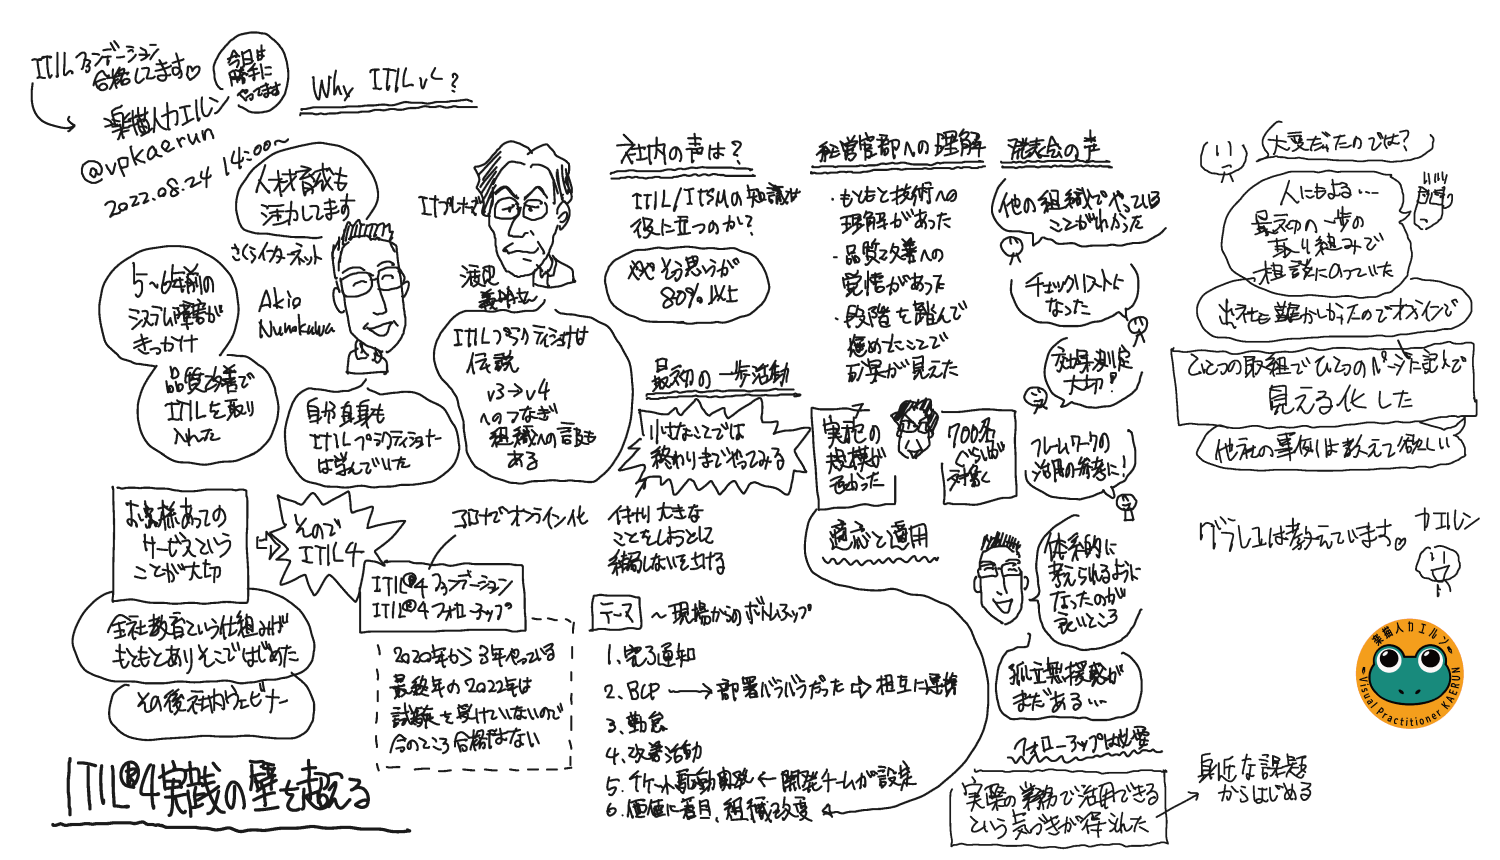 ITILファンデーション
合格してます♡
今日は
勝手に
やってます
楽描人カエルン
@vpkaerun
2022.08.24 14:00〜
Why ITIL v4?
人材育成も
注力してます
さくらインターネット
Akio
Numakawa
5〜6年前の
システム障害が
きっかけ
品質改善で
ITILを取り
入れた
自分自身も
ITILプラクティショナー
は学んでいた
お客様あっての
サービスという
ことが大切
そので
ITIL4
コロナでオンライン化
ITIL®4 ファンデーション
ITIL®4 フォローアップ
全社教育という仕組みが
もともとありそこではじめた
その後社内ウェビナー
2020年から3年やっている
最終年の2022年は
試験を受けていないので
今のところ合格はない
ITIL®4実践の壁を超える
ITプレナーズ
ITILプラクティショナは
伝説
v3→v4
へのつなぎ
組織への話も
ある
社内の声は?
ITIL/ITSMの知識は
役に立つのか?
ややそう思うが
80%以上
最初の一歩活動
小さなことでは
終わりまでやってみる
イキナリ大きな
ことをしようとして
結局しないを避ける
テーマ 〜現場からのボトムアップ
1. 完了通知
2. BCP → 部署バラバラだった ⇨ 相互に連携
3. 勤怠
4. 改善活動
5. チケット駆動実践 ← 開発チームが設定
6. 価値に着目、組織改変 ←
経営官部への理解
・もともと技術への
理解があった
・品質改善への
覚悟があった
・段階を踏んで
進めたことで
効果が見えた
実施の
規模が
大きかった
700名
ぐらいが
対象
適応と適用
発表会の声
他の組織でやっている
ことがわかった
チェックリストに
なった
効果測定
大切!
フレームワークの
活用の参考に!
体系的に
考えられるように
なったのが
良いところ
孤立無援感が
まだある…
フォローアップは必要
実際の業務で活用できる
という気づきが得られた
身近な課題
からはじめる
大変だったのでは?
人にもよる…
最初の一歩の
取り組みで
相談にのっていた
出社も難しかったのでオンラインで
ひとつの取組でひとつのページに記入で
見える化した
他社の事例は教えて欲しい
グラレコは教えています♡
カエルン
楽描人カエルン
Visual Practitioner KAERUN